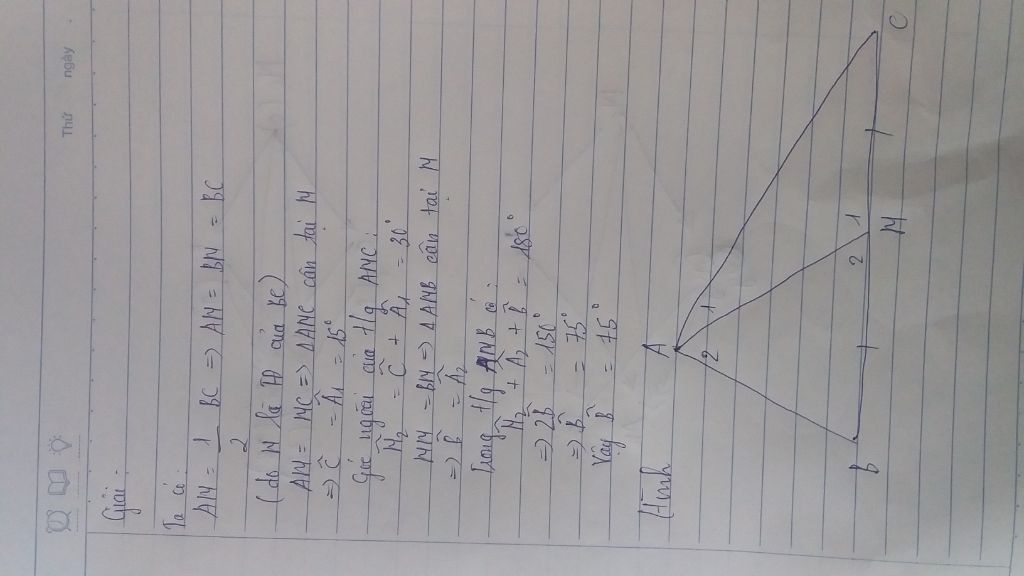 Thứ ngày
Giải:
Ta có:
AM = 1/2 BC => AM = BM = BC
(do M là TĐ của BC)
AM = MC => ΔAMC cân tại M
=> Ĉ = Â1 = 15°
Góc ngoài của t/g AMC:
M̂2 = Ĉ + Â1 = 30°
MM = BM => ΔAMB cân tại M
=> B̂ = Â2
Trong t/g AMB có:
M̂2 + Â2 + B̂ = 180°
=> 2B̂ = 150°
=> B̂ = 75°
Vậy B̂ = 75°
(Hình
A
2 1
B 2 1 C
M